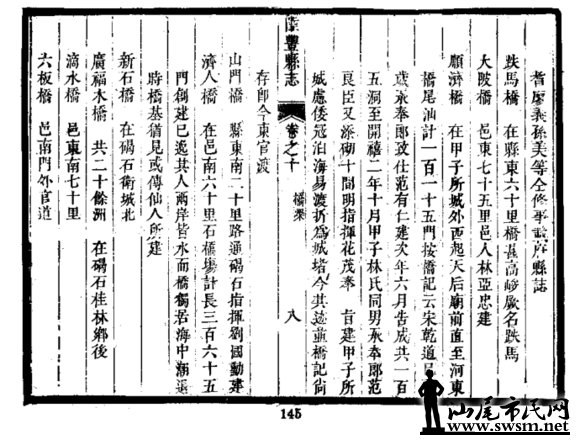 耆廖義孫美等仝修事詳府縣誌
跌馬橋 在縣東六十里橋甚高峻厥名跌馬
大陂橋 邑東七十五里邑人林亞忠建
順濟橋 在甲子所城外西起天后廟前直至河東
橋尾汕計一百一十五門按舊記云宋乾道
歲承奉郎致仕范有仁建次年六月告成共一百
五洞至開禧二年十月甲子林氏同男承奉郎范
良臣又添砌十間明指揮花茂奉 旨建甲子所
城處倭冦泊海易渡折為城堵今其遺董橋記尚
海豐縣志
卷之十
橋梁
八
存卽今東官渡
山門橋 縣東南二十里路通碣石指揮劉國勳建
濟人橋 在邑南六十里石橋塲計長三百六十五
門創建已逸其人兩岸皆水而橋獨居海中潮退
時橋基猶見或傳仙人所建
新石橋 在碣石衛城北
廣福木橋 共二十餘洲 在碣石桂林鄉後
滴水橋 邑東南七十里
六板橋 邑南門外官道
145
汕尾市民网
www.swsm.net